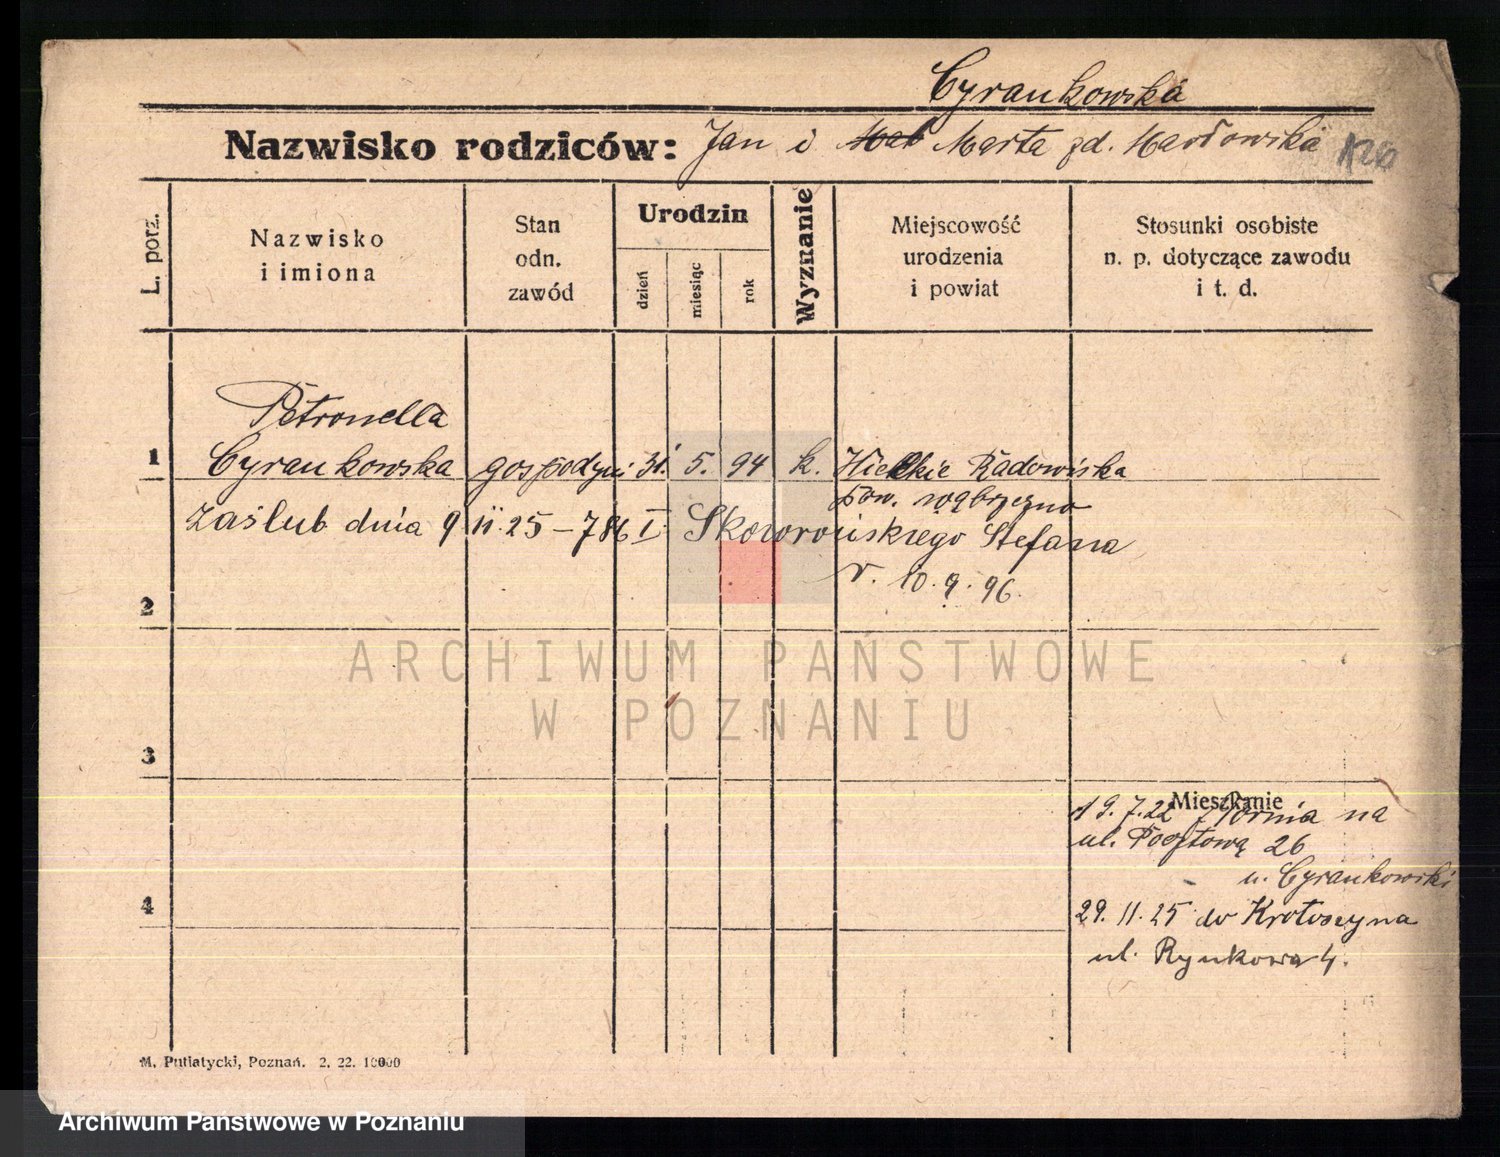 Cyrankowska
Nazwisko rodziców: Jan i Marta zd. Marłowska
L. porz.
Nazwisko
i imiona
Stan
odn.
zawód
Urodzin
dzień
miesiąc
rok
Wyznanie
Miejscowość
urodzenia
i powiat
Stosunki osobiste
n. p. dotyczące zawodu
i t. d.
Petronella
1 Cyrankowska gospodyni 31. 5. 94 k. Wielkie Radowiska
pow. wąbrzeźno
zaślub dnia 9 11.25 – 786 I Skoworońskiego Stefana
r. 10.9.96.
2
ARCHIWUM PAŃSTWOWE
W POZNANIU
3
Mieszkanie
19.7.22 z Tornia na
ul. Pocztową 26
u. Cyrankowski
4
29.11.25 do Krotoszyna
ul. Rynkowa 4.
M. Putiatycki, Poznań. 2. 22. 10000
Archiwum Państwowe w Poznaniu